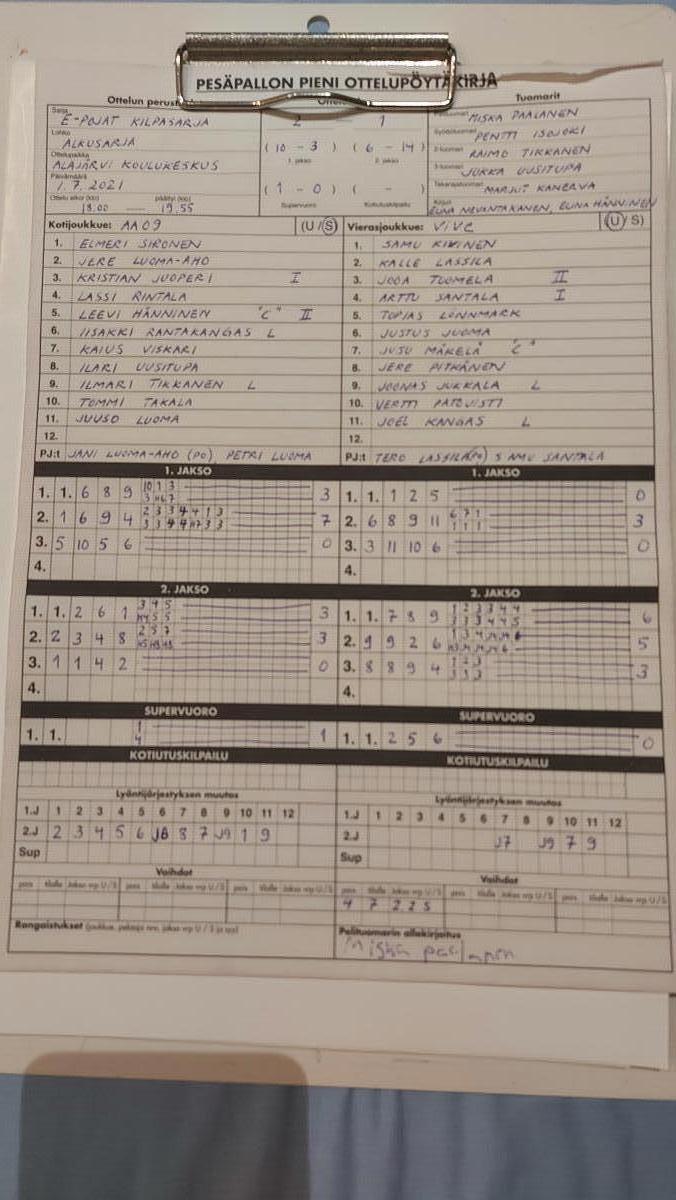 PESÄPALLON PIENI OTTELUPÖYTÄKIRJA
Ottelun perust
Tuomarit
Sarja
E-POJAT KILPASARJA
Lohko
ALKUSARJA
Ottelupaikka
ALAJÄRVI KOULUKESKUS
Päivämäärä
1.7.2021
Ottelu alkoi (klo) päättyi (klo)
18.00 19.55
2 1
(10 - 3) (6 - 14)
1. jakso 2. jakso
(1 - 0) ( - )
Supervuoro Kotiutuskilpailu
MISKA PAALANEN
PENTTI ISOJOKI
RAIMO TIKKANEN
JUKKA UUSITUPA
MARJUT KANERVA
ELINA NEVANTAKANEN, ELINA HÄNNINEN
Kotijoukkue: AA09 (U/S)
1. ELMERI SIRONEN
2. JERE LUOMA-AHO
3. KRISTIAN JUOPERI I
4. LASSI RINTALA
5. LEEVI HÄNNINEN "C" II
6. IISAKKI RANTAKANGAS L
7. KAIUS VISKARI
8. ILARI UUSITUPA
9. ILMARI TIKKANEN L
10. TOMMI TAKALA
11. JUUSO LUOMA
12.
PJ:t JANI LUOMA-AHO (PO) PETRI LUOMA
Vierasjoukkue: ViVe (U/S)
1. SAMU KIVINEN
2. KALLE LASSILA
3. JOOA TUOMELA II
4. ARTTU SANTALA I
5. TOPIAS LÖNNMARK
6. JUSTUS JUOMA
7. JUSU MÄKELÄ "C"
8. JERE PITKÄNEN
9. JOONAS JUKKALA L
10. VERTTI PATOJISTI
11. JOEL KANGAS L
12.
PJ:t TERO LASSILA(PO) SAMU SANTALA
1. JAKSO
1. 1. 6 8 9 10 1 3 3
2. 1 6 9 4 2 3 3 4 4 1 3 7
3. 5 10 5 6 0
4.
1. JAKSO
1. 1. 1 2 5 0
2. 6 8 9 11 6 7 1 1 1 1 3
3. 3 11 10 6 0
4.
2. JAKSO
1. 1. 2 6 1 3 4 5 3
2. 2 3 4 8 2 5 7 3
3. 1 1 4 2 0
4.
2. JAKSO
1. 1. 7 8 9 1 2 3 3 4 4 3 3 3 4 4 5 6
2. 9 9 2 6 5
3. 8 8 9 4 1 2 3 3 3 3 3
4.
SUPERVUORO
1. 1. 1 4 1
SUPERVUORO
1. 1. 2 5 6 0
KOTIUTUSKILPAILU
KOTIUTUSKILPAILU
Lyöntijärjestyksen muutos
1.J 1 2 3 4 5 6 7 8 9 10 11 12
2.J 2 3 4 5 6 J8 8 7 J9 1 9
Sup
Lyöntijärjestyksen muutos
1.J 1 2 3 4 5 6 7 8 9 10 11 12
2.J J7 J9 7 9
Sup
Vaihdot
pois tilalle Jakso vrp U/S pois tilalle Jakso vrp U/S pois tilalle Jakso vrp U/S
Vaihdot
pois tilalle Jakso vrp U/S pois tilalle Jakso vrp U/S pois tilalle Jakso vrp U/S
4 7 2 2 S
Rangaistukset (joukkue, pelaaja nro, jakso vrp U / S ja syy)
Pelituomarin allekirjoitus
Miska paalanen